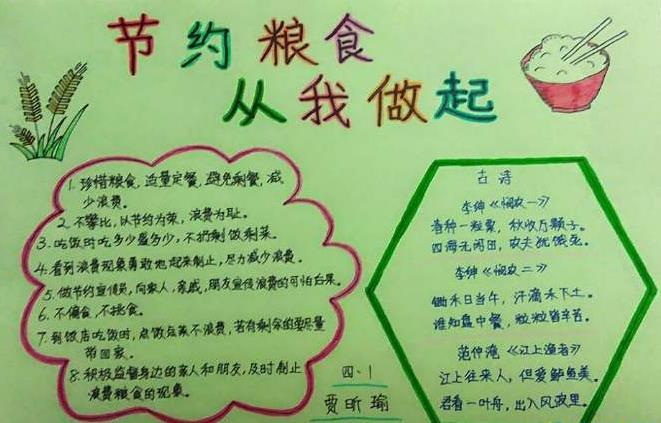 节约粮食
从我做起
1. 珍惜粮食,适量定餐,避免剩餐,减
少浪费。
2. 不攀比,以节约为荣,浪费为耻。
3. 吃饭时吃多少盛多少,不扔剩饭剩菜。
4. 看到浪费现象勇敢地起来制止,尽力减少浪费。
5. 做节约宣传员,向家人,亲戚,朋友宣传浪费的可怕后果。
6. 不偏食,不挑食。
7. 到饭店吃饭时,点饭点菜不浪费,若有剩余的要尽量
带回家。
8. 积极监督身边的亲人和朋友,及时制止
浪费粮食的现象。
四、1
贾昕瑜
古诗
李绅《悯农一》
春种一粒粟,秋收万颗子。
四海无闲田,农夫犹饿死。
李绅《悯农二》
锄禾日当午,汗滴禾下土。
谁知盘中餐,粒粒皆辛苦。
范仲淹《江上渔者》
江上往来人,但爱鲈鱼美。
君看一叶舟,出入风波里。